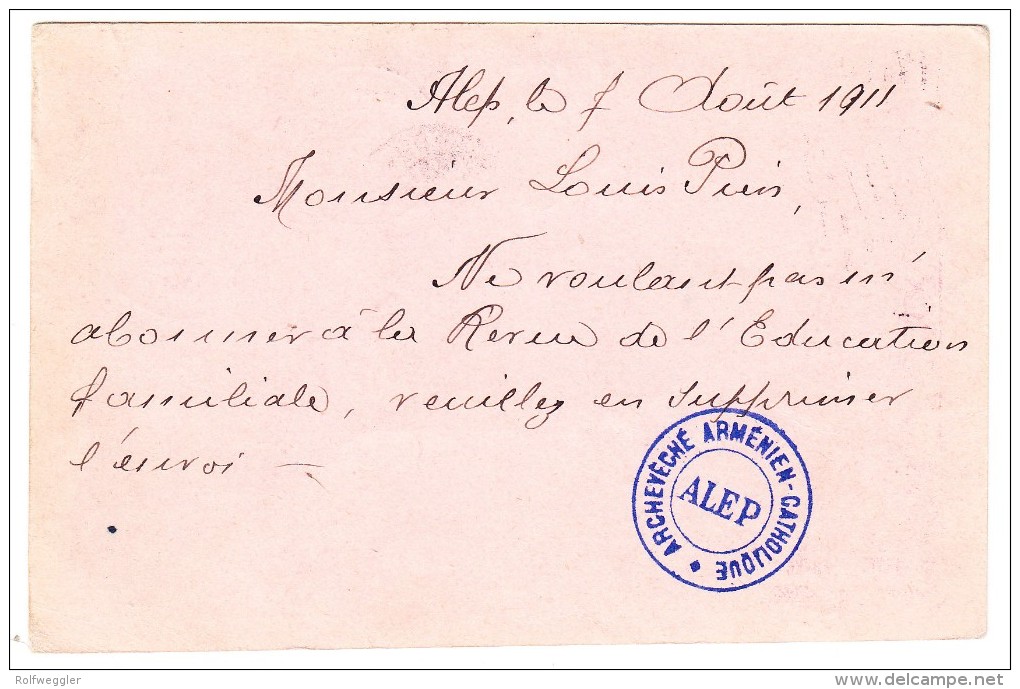 Alep, le 7 Août 1911
Monsieur Louis
Ne voulant pas m'
abonner à la Revue de l'Education
familiale, veuillez en supprimer
l'envoi —
ARCHEVÊCHÉ ARMÉNIEN-CATHOLIQUE
ALEP
Rolfweggler
delcampe.net